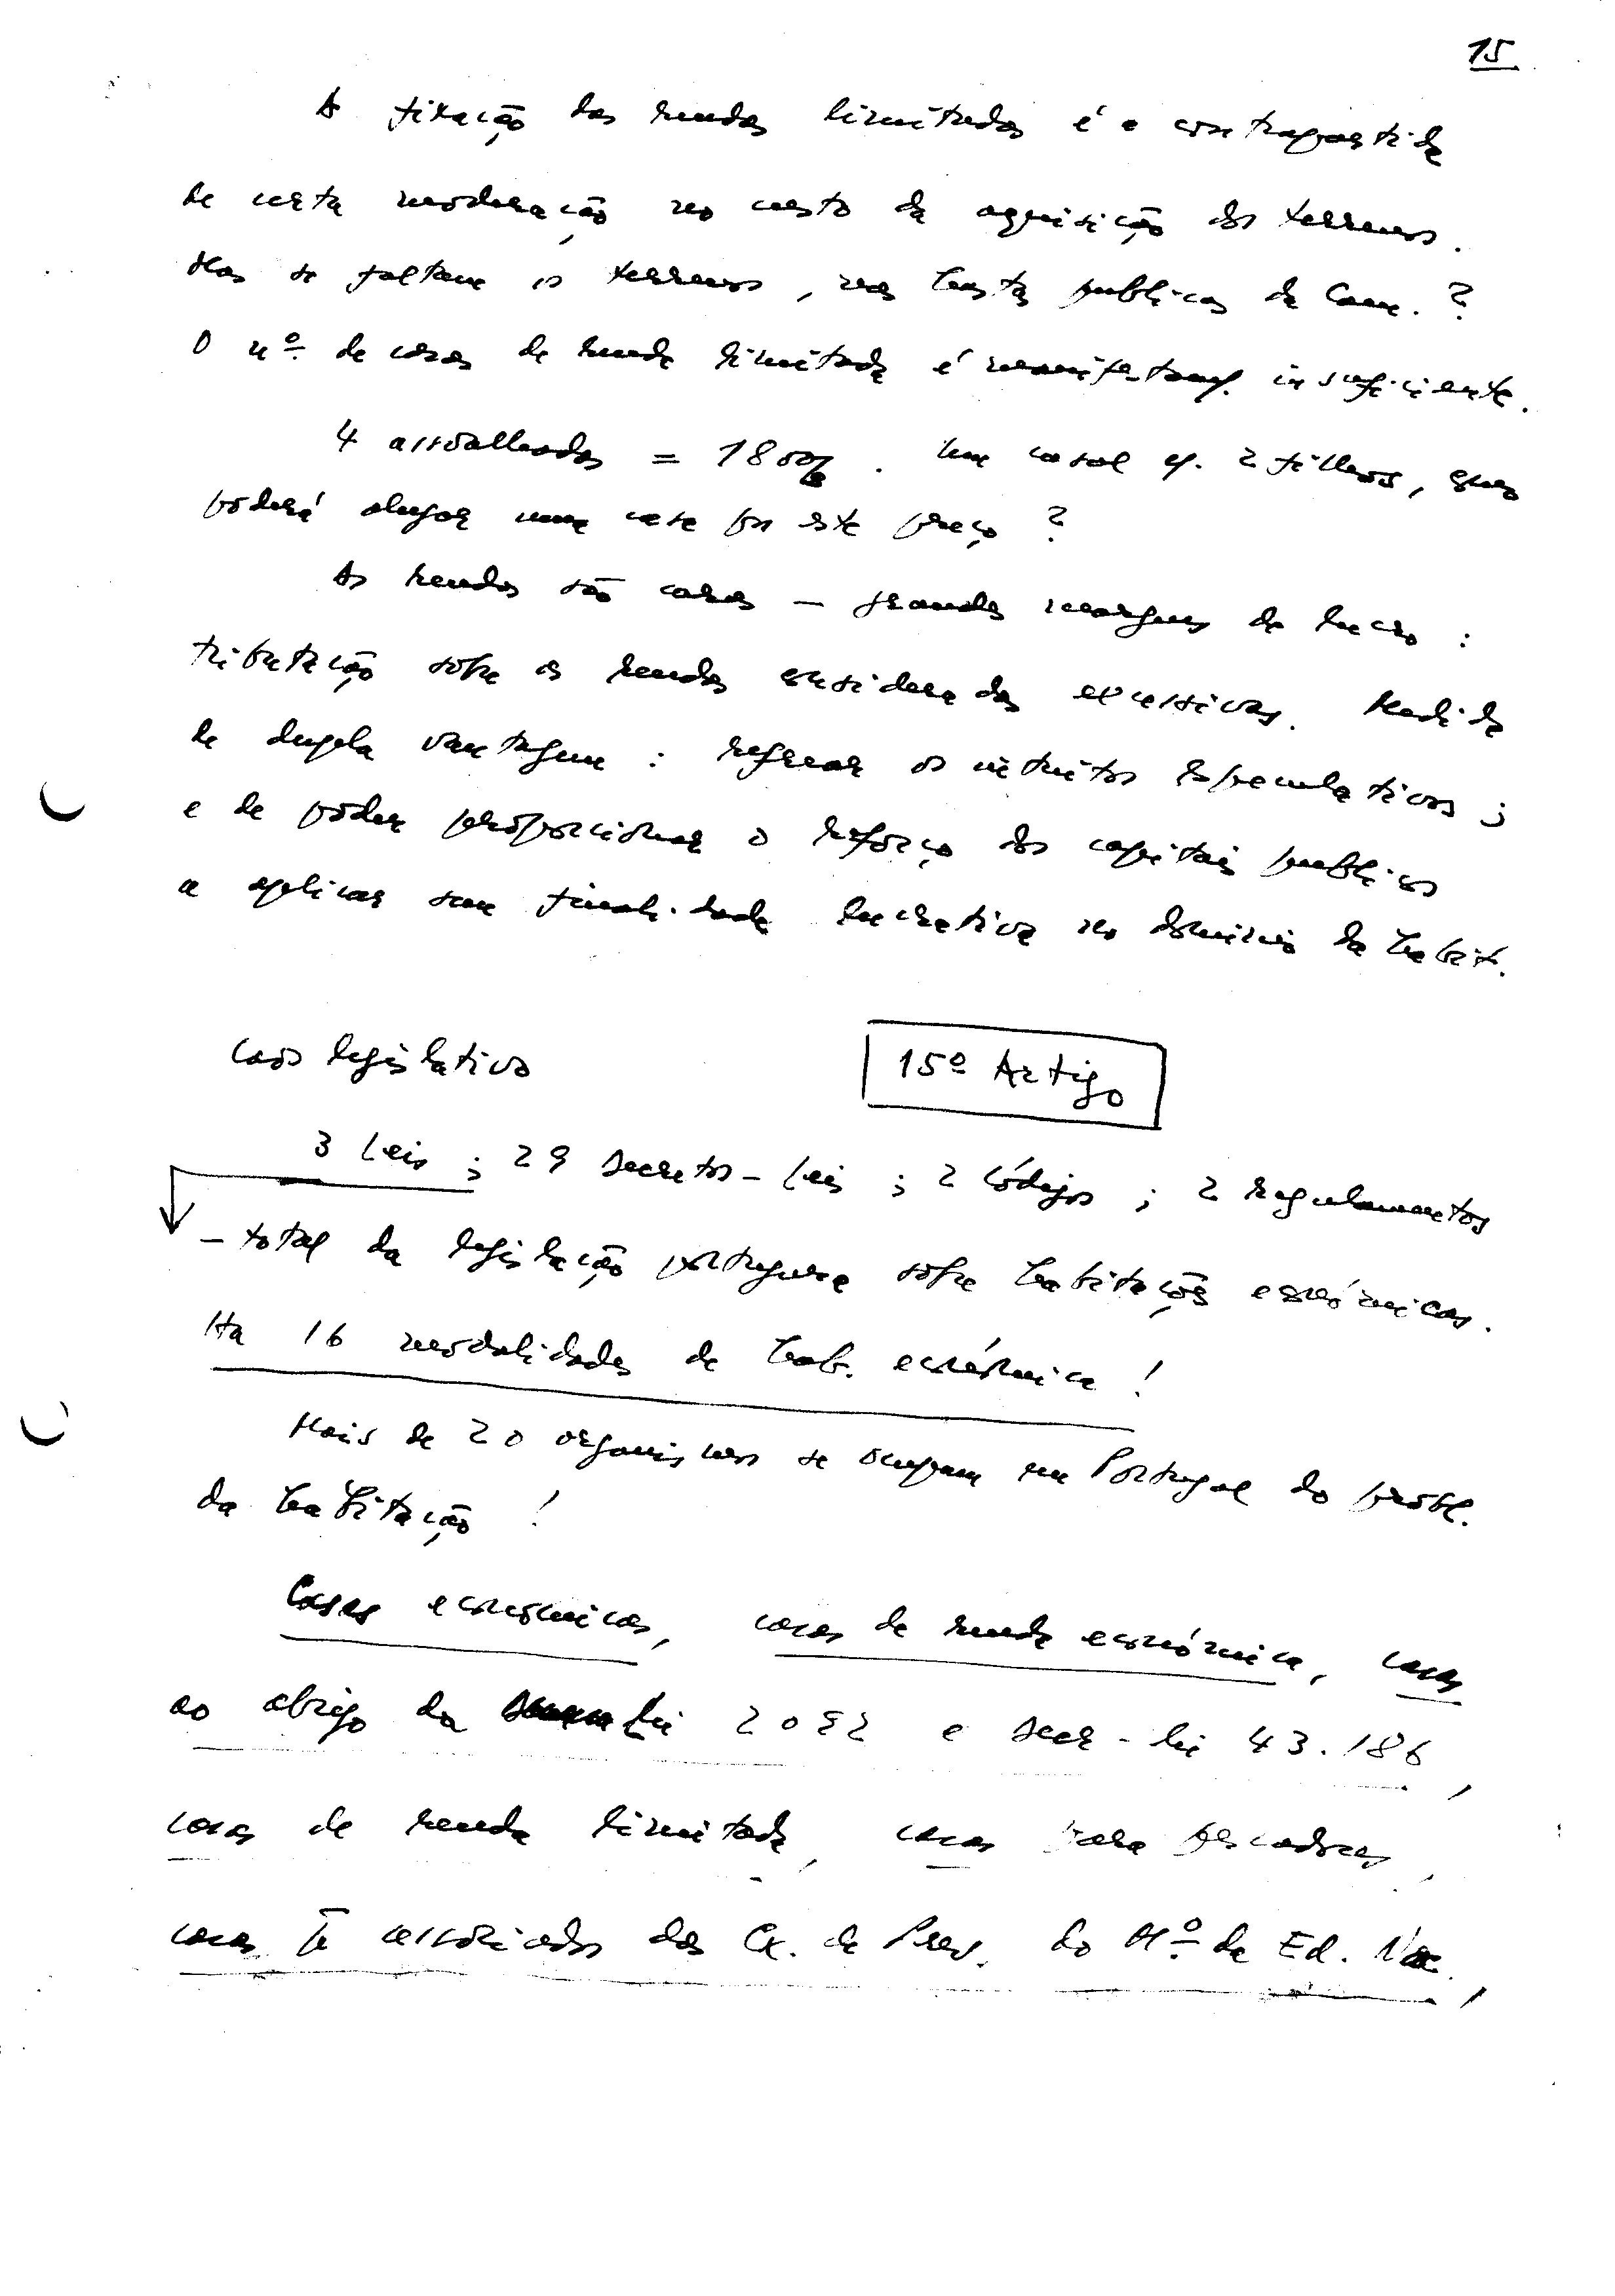 15
A fixação das rendas limitadas é a contrapartida
de certa moderação no custo da aquisição dos terrenos.
Mas se faltam os terrenos, nas hastas publicas da Cam.?
O nº de casas de renda limitada é manifestamt. insuficiente.
4 assoalhadas = 1800$. Um casal c/. 2 filhos, que
poderá alugar uma casa por este preço?
As rendas são caras — grandes margens de lucro:
tributação sobre as rendas consideradas excessivas. Medida
de dupla vantagem: refrear os intuitos especulativos;
e de poder proporcionar o reforço dos capitais publicos
a aplicar sem finalidade lucrativa no dominio da habit.
Caos legislativo
15º Artigo
3 Leis; 29 Decretos-Leis; 2 Códigos; 2 Regulamentos
- total da legislação portuguesa sobre habitações económicas.
Ha 16 modalidades de hab. económica!
Mais de 20 organismos se ocupam em Portugal do probl.
da habitação!
Casas económicas, casas de renda económica, casas
ao abrigo da Lei 2092 e Decr-lei 43.186,
casas de renda limitada, casas para pescadores,
casas p. associados das Cx. de Prev. do Mº da Ed. Nac.,